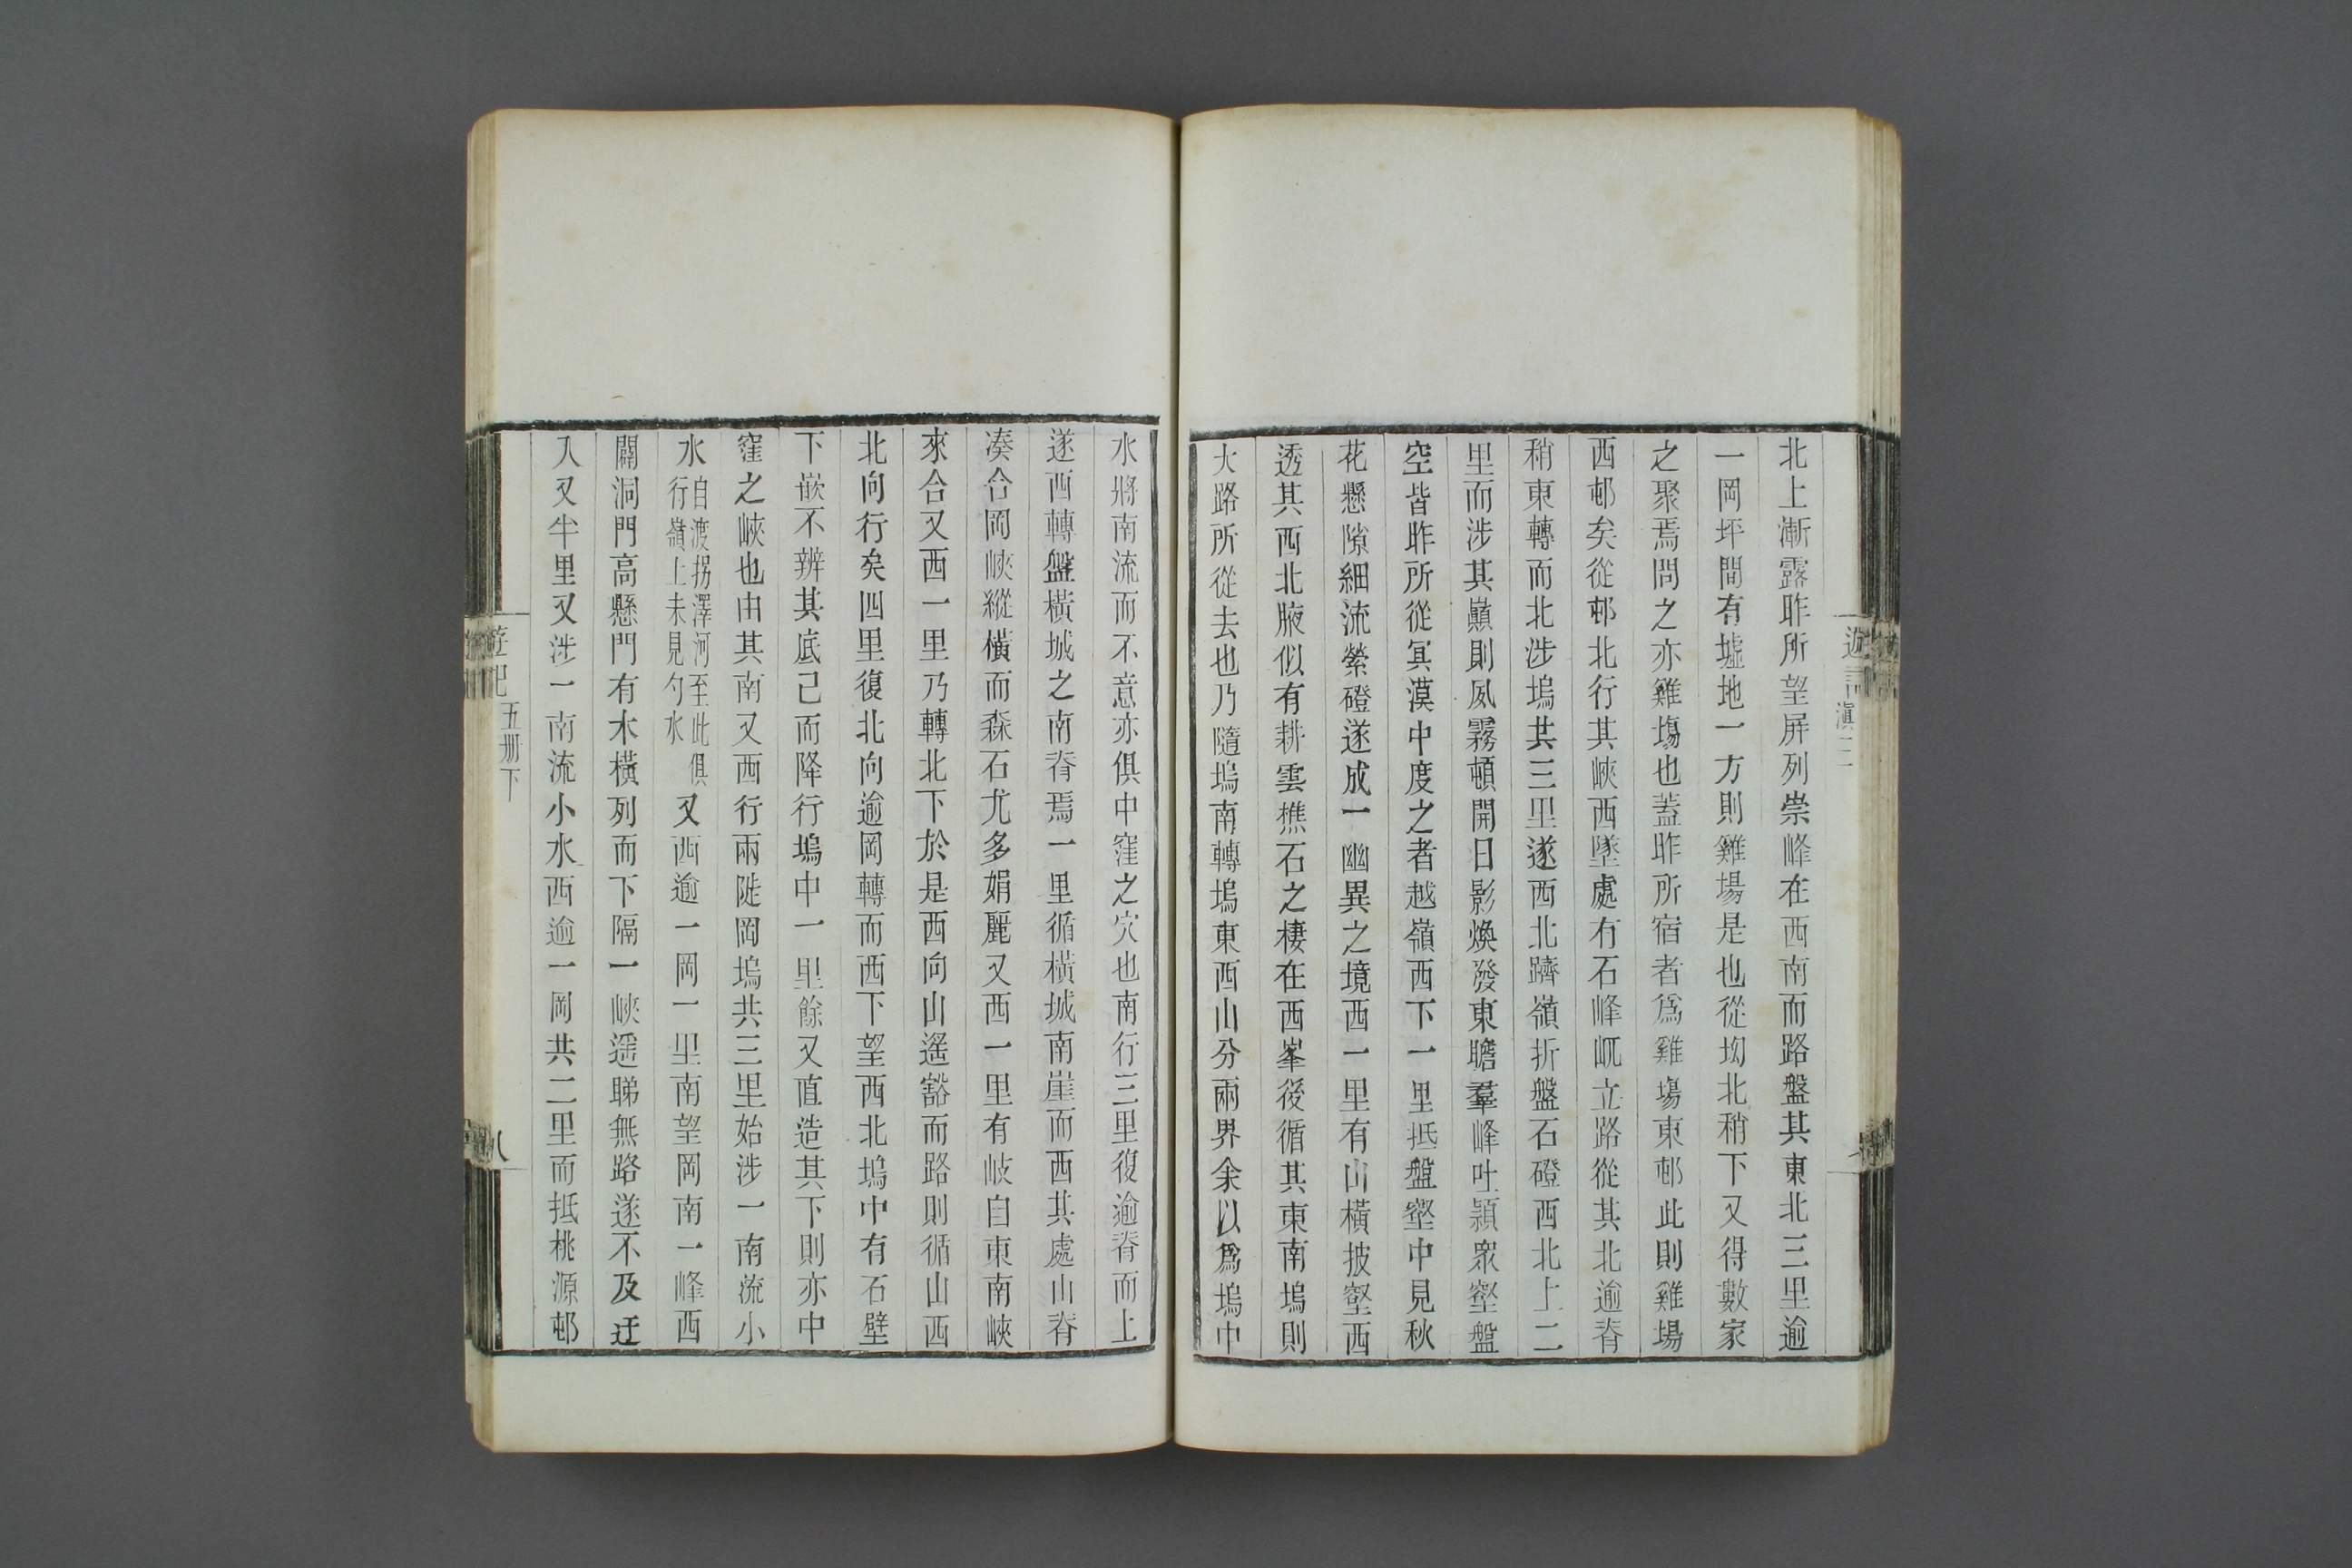 北上漸露昨所望屏列崇峰在西南而路盤其東北三里逾
一岡坪間有墟地一方則雞場是也從坳北稍下又得數家
之聚焉問之亦雞塲也蓋昨所宿者爲雞塲東邨此則雞場
西邨矣從邨北行其峽西墜處有石峰屼立路從其北逾脊
稍東轉而北涉塢共三里遂西北躋嶺折盤石磴西北上二
里而涉其巔則夙霧頓開日影煥發東瞻羣峰吐頴眾壑盤
空皆昨所從冥漠中度之者越嶺西下一里抵盤壑中見秋
花懸隙細流縈磴遂成一幽異之境西一里有山橫披壑西
透其西北腋似有耕雲樵石之棲在西峯後循其東南塢則
大路所從去也乃隨塢南轉塢東西山分兩界余以爲塢中
水將南流而不意亦俱中窪之穴也南行三里復逾脊而上
遂西轉盤橫城之南脊焉一里循橫城南崖而西其處山脊
湊合岡峽縱橫而森石尤多娟麗又西一里有岐自東南峽
來合又西一里乃轉北下於是西向山遙豁而路則循山西
北向行矣四里復北向逾岡轉而西下望西北塢中有石壁
下嵌不辨其底已而降行塢中一里餘又直造其下則亦中
窪之峽也由其南又西行兩陡岡塢共三里始涉一南流小
水自渡拐澤河至此俱行嶺上未見勺水又西逾一岡一里南望岡南一峰西
闢洞門高懸門有木橫列而下隔一峽遥睇無路遂不及迂
入又半里又涉一南流小水西逾一岡共二里而抵桃源邨
遊記
五册下
八